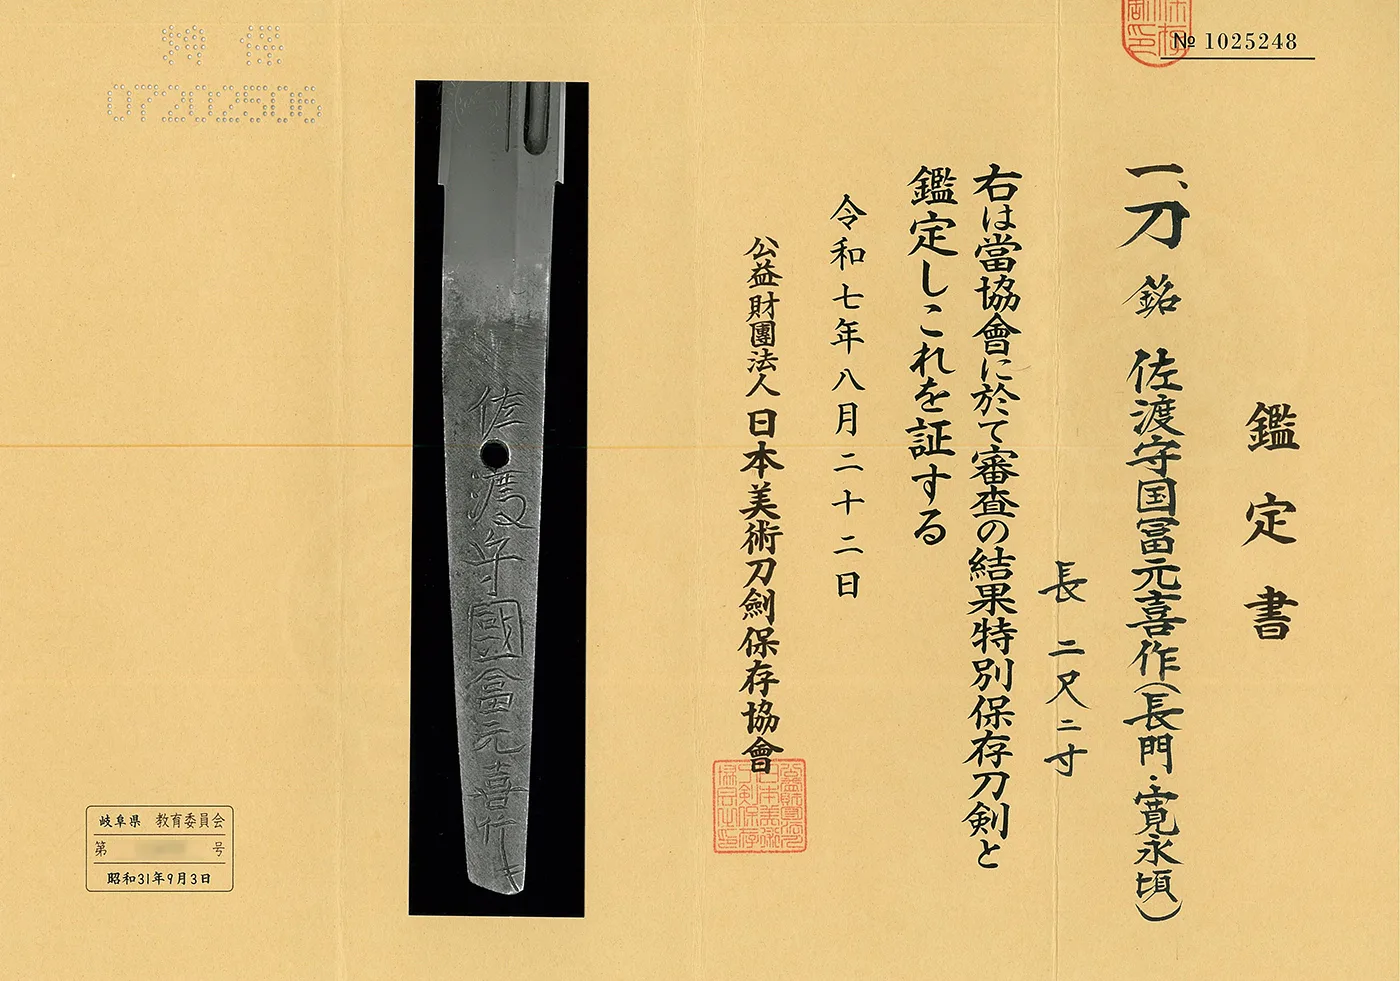 鑑定書
№ 1025248
一、刀 銘 佐渡守国冨元喜作(長門・寛永頃)
長 二尺二寸
右は當協會に於て審査の結果特別保存刀剣と
鑑定しこれを証する
令和七年八月二十二日
公益財團法人 日本美術刀劍保存協會
佐渡守國冨元喜作
07202506
岐阜県 教育委員会
第 号
昭和31年9月3日